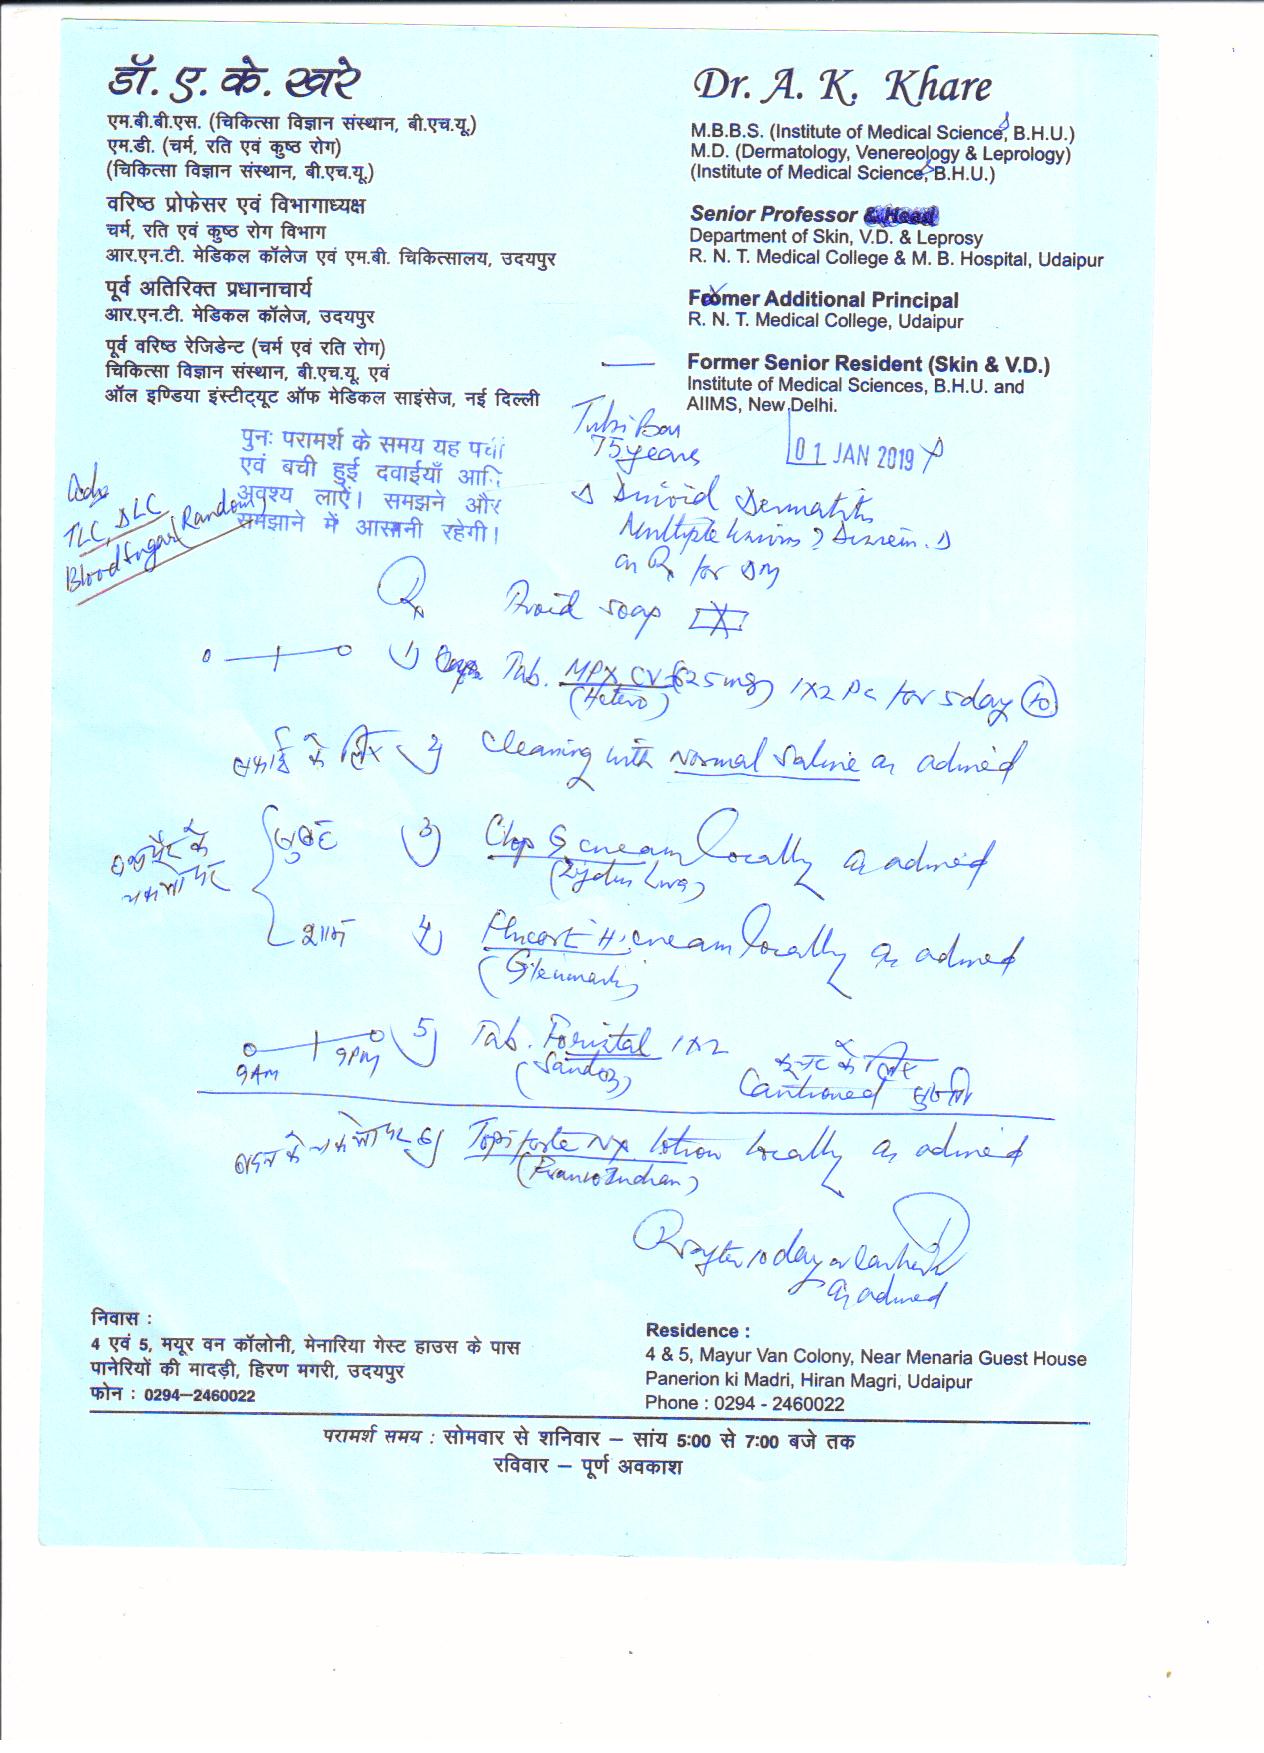 डॉ. ए. के. खरे
एम.बी.बी.एस. (चिकित्सा विज्ञान संस्थान, बी.एच.यू.)
एम.डी. (चर्म, रति एवं कुष्ठ रोग)
(चिकित्सा विज्ञान संस्थान, बी.एच.यू.)
वरिष्ठ प्रोफेसर एवं विभागाध्यक्ष
चर्म, रति एवं कुष्ठ रोग विभाग
आर.एन.टी. मेडिकल कॉलेज एवं एम.बी. चिकित्सालय, उदयपुर
पूर्व अतिरिक्त प्रधानाचार्य
आर.एन.टी. मेडिकल कॉलेज, उदयपुर
पूर्व वरिष्ठ रेजिडेन्ट (चर्म एवं रति रोग)
चिकित्सा विज्ञान संस्थान, बी.एच.यू. एवं
ऑल इण्डिया इंस्टीट्यूट ऑफ मेडिकल साइंसेज, नई दिल्ली
Dr. A. K. Khare
M.B.B.S. (Institute of Medical Sciences, B.H.U.)
M.D. (Dermatology, Venereology & Leprology)
(Institute of Medical Sciences, B.H.U.)
Senior Professor & Head
Department of Skin, V.D. & Leprosy
R. N. T. Medical College & M. B. Hospital, Udaipur
Former Additional Principal
R. N. T. Medical College, Udaipur
Former Senior Resident (Skin & V.D.)
Institute of Medical Sciences, B.H.U. and
AIIMS, New Delhi.
पुनः परामर्श के समय यह पर्ची
एवं बची हुई दवाईयाँ आदि
अवश्य लाऐं। समझने और
समझाने में आसानी रहेगी।
75 years
01 JAN 2019
TLC, DLC
Blood Sugar (Random)
Dermatitis
Multiple
on Rx for DM
Rx Avoid soap
1) Tab. MPX CV (625 mg) 1X2 PC for 5 day (10)
(Hetero)
सफाई के लिए 2) Cleaning with Normal Saline as advised
सुबह 3) Clop G cream locally as advised
(Zydus
शाम 4) Flucort H cream locally as advised
(Glenmark)
5) Tab. Foristal 1X2
9 AM 9 PM (Sandoz) के लिए
Cautioned
बदन के चकत्तो पर 6) Topiforte NX lotion locally as advised
(Franco Indian)
R after 10 day or earlier
as advised
निवास :
4 एवं 5, मयूर वन कॉलोनी, मेनारिया गेस्ट हाउस के पास
पानेरियों की मादड़ी, हिरण मगरी, उदयपुर
फोन : 0294-2460022
Residence :
4 & 5, Mayur Van Colony, Near Menaria Guest House
Panerion ki Madri, Hiran Magri, Udaipur
Phone : 0294 - 2460022
परामर्श समय : सोमवार से शनिवार – सांय 5:00 से 7:00 बजे तक
रविवार – पूर्ण अवकाश